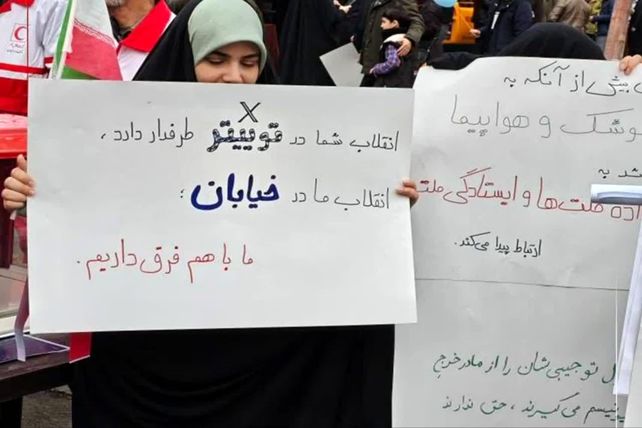 X
انقلاب شما در توییتر طرفدار دارد،
انقلاب ما در خیابان؛
ما با هم فرق داریم.
بیش از آنکه به
موشک و هواپیما
اده ملت‌ها و ایستادگی ملت
ارتباط پیدا می‌کند.
توجیبی‌شان را از مادر خرجِ
می‌گیرند، حق ندارند